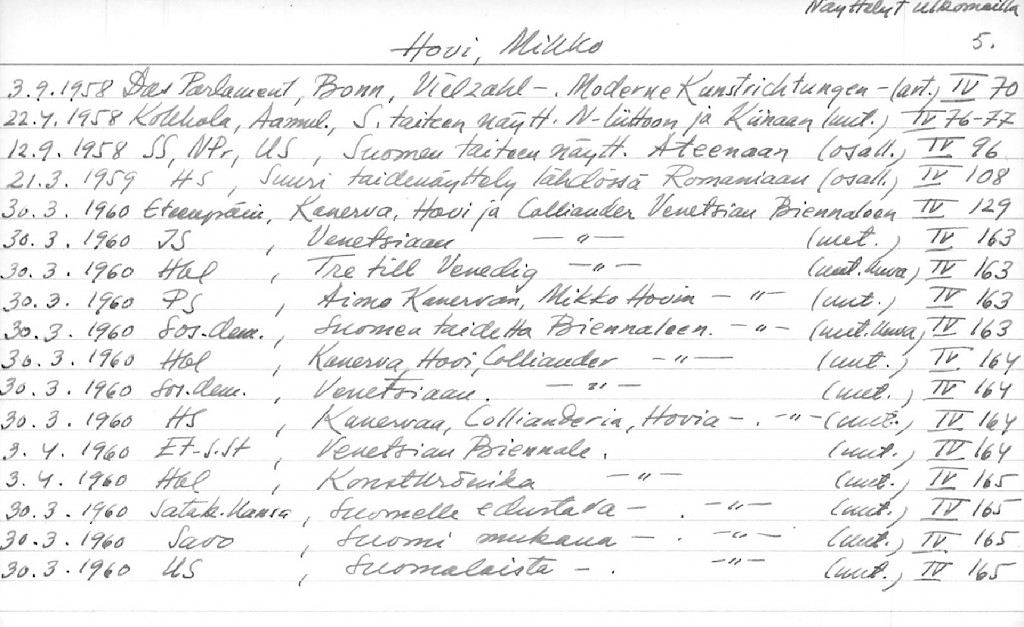 Näyttelyt ulkomailla
5.
Hovi, Mikko
3.9.1958 Das Parlament, Bonn, Vielzahl -. Moderne Kunstrichtungen - (art.) IV 70
22.4.1958 Kokkola, Aamul., S. taiteen näytt. N-liittoon ja Kiinaan (uut.) IV 76-77
12.9.1958 SS, NPr, US, Suomen taiteen näytt. Ateenaan (osall.) IV 96
21.3.1959 HS, Suuri taidenäyttely lähdössä Romaniaan (osall.) IV 108
30.3.1960 Eteenpäin, Kanerva, Hovi ja Colliander Venetsian Biennaleen IV 129
30.3.1960 IS, Venetsiaan -"- (uut.) IV 163
30.3.1960 Hbl, Tre till Venedig -"- (uut. kuva) IV 163
30.3.1960 PS, Aimo Kanervan, Mikko Hovin -"- (uut.) IV 163
30.3.1960 Sos.dem., Suomen taidetta Biennaleen. -"- (uut. kuva) IV 163
30.3.1960 Hbl, Kanerva, Hovi, Colliander -"- (uut.) IV 164
30.3.1960 Sos.dem., Venetsiaan. -"- (uut.) IV 164
30.3.1960 HS, Kanervaa, Collianderia, Hovia -. -"- (uut.) IV 164
3.4.1960 Et-S.St, Venetsian Biennale. (uut.) IV 164
3.4.1960 Hbl, Konstkrönika -"- (uut.) IV 165
30.3.1960 Satak.Kansa, Suomelle edustava -. -"- (uut.) IV 165
30.3.1960 Savo, Suomi mukana -. -"- (uut.) IV 165
30.3.1960 US, Suomalaista -. -"- (uut.) IV 165